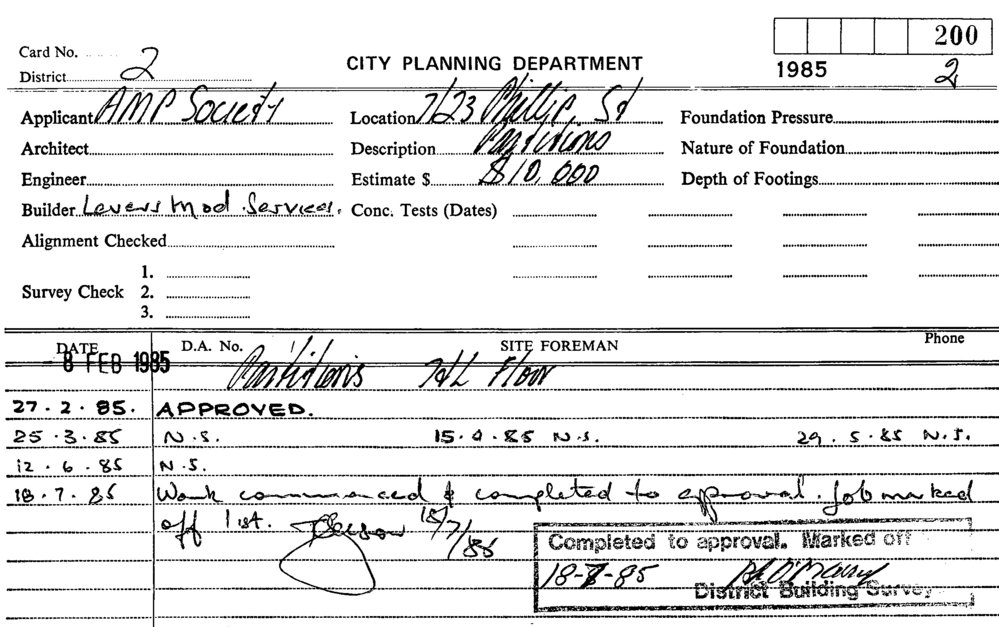 200
Card No.
CITY PLANNING DEPARTMENT
1985 2
District 2
Applicant AMP Society Location 7/23 Phillip St Foundation Pressure
Architect Description Partitions Nature of Foundation
Engineer Estimate $ $10,000 Depth of Footings
Builder Levers Mod. Services. Conc. Tests (Dates)
Alignment Checked
1.
Survey Check 2.
3.
DATE D.A. No. SITE FOREMAN Phone
8 FEB 1985 Partitions Floor
27.2.85. APPROVED.
25.3.85 N.S. 15.4.85 N.S. 29.5.85 N.S.
12.6.85 N.S.
18.7.85 Work commenced & completed to approval. Job marked
off list. 18/7/85
Completed to approval. Marked off
18-7-85
District Building Survey